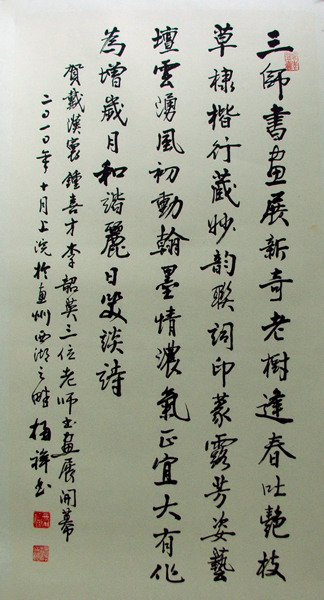 三师書畫展新奇老樹逢春吐艷枝
草棣楷行藏妙韵聯詞印篆露芳姿藝
壇雲湧風初動翰墨情濃氣正宜大有作
為增歲月和諧麗日笑談詩
賀戴漢裳鍾喜才李韶英三位老师书画展開幕
二〇一〇年十月上浣於惠州西湖之畔 楊祥书